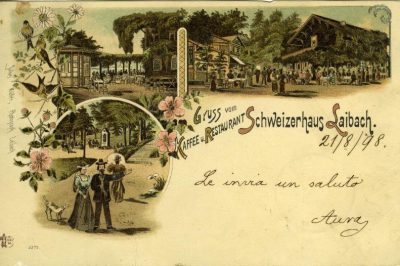 Gruss vom
Kaffee u. Restaurant Schweizerhaus Laibach.
21/8/98.
Le invia un saluto
Aura